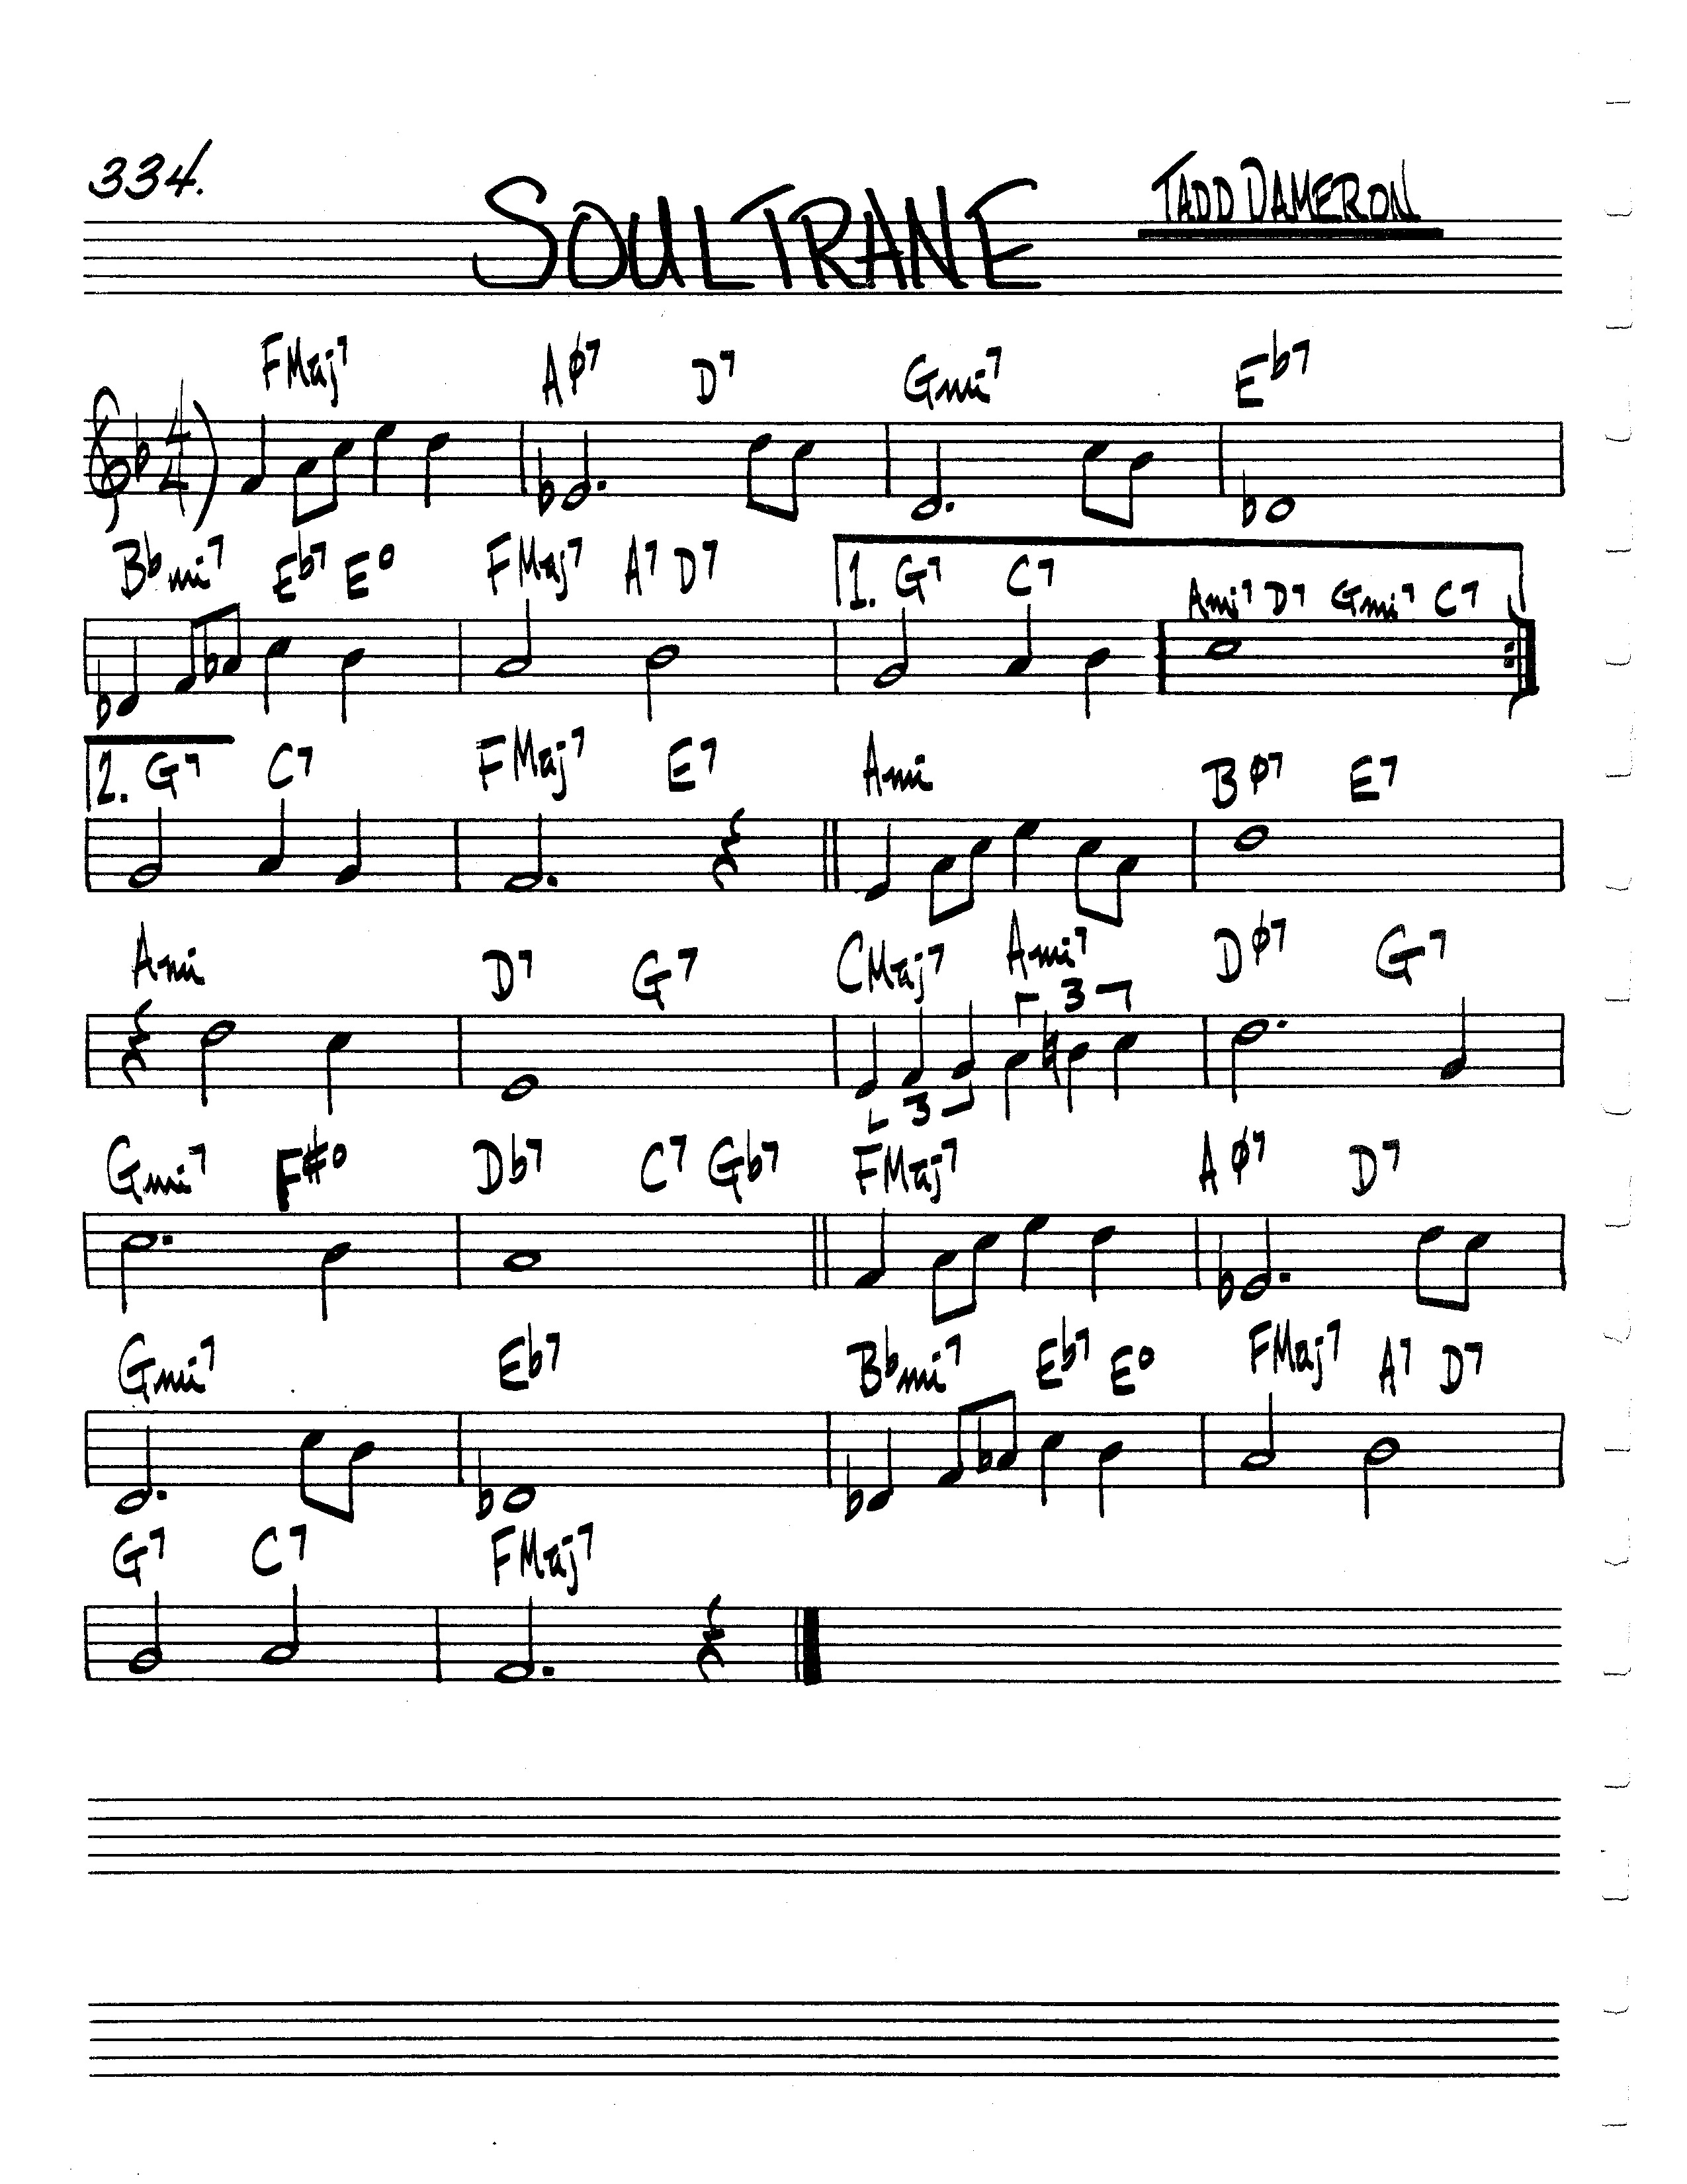 334.
SOULTRANE
TADD DAMERON
4
4
FMaj7 Aø7 D7 Gmi7 Eb7
Bbmi7 Eb7 Eo FMaj7 A7 D7 1. G7 C7 Ami7 D7 Gmi7 C7
2. G7 C7 FMaj7 E7 Ami Bø7 E7
Ami D7 G7 CMaj7 Ami7 Dø7 G7
3
3
Gmi7 F#o Db7 C7 Gb7 FMaj7 Aø7 D7
Gmi7 Eb7 Bbmi7 Eb7 Eo FMaj7 A7 D7
G7 C7 FMaj7